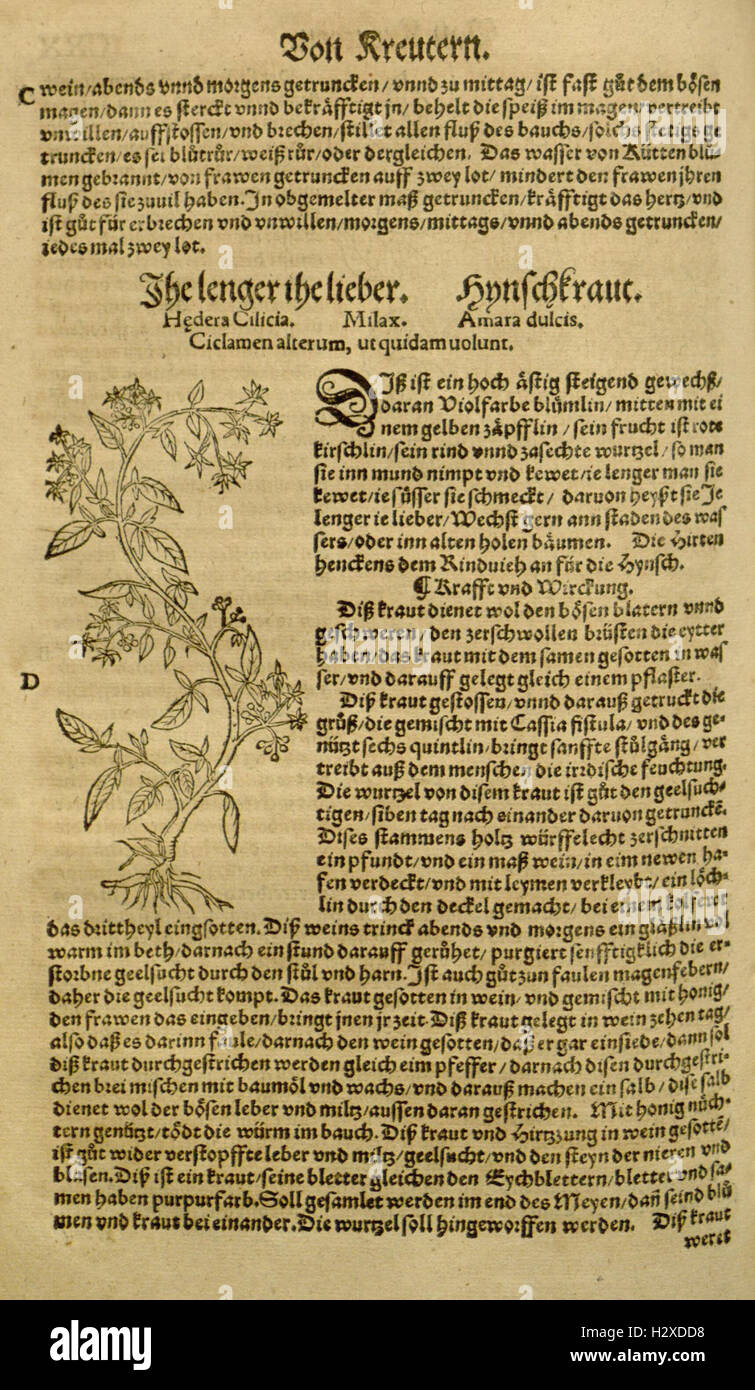 Von Kreutern.
C wein/abends vnnd morgens getruncken/vnnd zu mittag/ist fast gůt dem bösen
magen/dann es sterckt vnnd bekräfftigt jn/behelt die speiß im magen/vertreibt
vnwillen/auffstossen/vnd brechen/stillet allen fluß des bauchs/solchs stetigs ge
truncken/es sei blůtrůr/weiß růr/oder dergleichen. Das wasser von Kütten blů-
men gebrannt/von frawen getruncken auff zwey lot/mindert den frawen jhren
fluß des sie zuuil haben. In obgemelter maß getruncken/kräfftigt das hertz/vnd
ist gůt für erbrechen vnd vnwillen/morgens/mittags/vnnd abends getruncken/
iedes mal zwey lot.
Ihe lenger ihe lieber. Hynschkraut.
Hędera Cilicia. Milax. Amara dulcis.
Ciclamen alterum, ut quidam uolunt.
Diß ist ein hoch ästig steigend gewechß/
daran Violfarbe blůmlin/mitten mit ei
nem gelben zäpfflin/sein frucht ist rote
kirschlin/sein rind vnnd zasechte wurtzel/so man
sie inn mund nimpt vnd kewet/ie lenger man sie
kewet/ie süsser sie schmeckt/daruon heyßt sie Je
lenger ie lieber/Wechst gern ann staden des was
sers/oder inn alten holen bäumen. Die Hirten
henckens dem Rindvieh an für die Hynsch.
¶ Krafft vnd Wirckung.
Diß kraut dienet wol den bösen blatern vnnd
geschweren/den zerschwollen brüsten die eytter
haben/das kraut mit dem samen gesotten in was
D ser/vnd darauff gelegt gleich einem pflaster.
Diß kraut gestossen/vnnd darauß getruckt die
grůß/die gemischt mit Cassia fistula/vnd des ge-
nützt sechs quintlin/bringt sanffte stůlgäng/ver
treibt auß dem menschen die irrdische feuchtung.
Die wurtzel von disem kraut ist gůt den geelsuch-
tigen/siben tag nach einander daruon getrunckẽ.
Dises stammens holtz würffelecht zerschnitten
ein pfundt/vnd ein maß wein/in eim newen ha-
fen verdeckt/vnd mit leymen verkleybt/ein löch-
lin durch den deckel gemacht/bei einem kolfewer
das drittheyl eingsotten. Diß weins trinck abends vnd morgens ein gläßlin vol
warm im beth/darnach ein stund darauff gerůhet/purgiert senfftigklich die er-
storbne geelsucht durch den stůl vnd harn. Ist auch gůt zun faulen magenfebern/
daher die geelsucht kompt. Das kraut gesotten in wein/vnd gemischt mit honig/
den frawen das eingeben/bringt jnen jr zeit. Diß kraut gelegt in wein zehen tag/
also daß es darinn faule/darnach den wein gesotten/daß er gar einsiede/dann sol
diß kraut durchgestrichen werden gleich eim pfeffer/darnach disen durchgestri-
chen brei mischen mit baumöl vnd wachs/vnd darauß machen ein salb/dise salb
dienet wol der bösen leber vnd miltz/aussen daran gestrichen. Mit honig nůch-
tern genützt/tödt die würm im bauch. Diß kraut vnd Hirtzzung in wein gesottẽ/
ist gůt wider verstopffte leber vnd miltz/geelsucht/vnd den steyn der nieren vnd
blasen. Diß ist ein kraut/seine bletter gleichen den Eychblettern/bletter vnd sa-
men haben purpurfarb. Soll gesamlet werden im end des Meyen/dañ seind blů
men vnd kraut bei einander. Die wurtzel soll hingeworffen werden. Diß kraut
werit
alamy
Image ID: H2XDD8
www.alamy.com